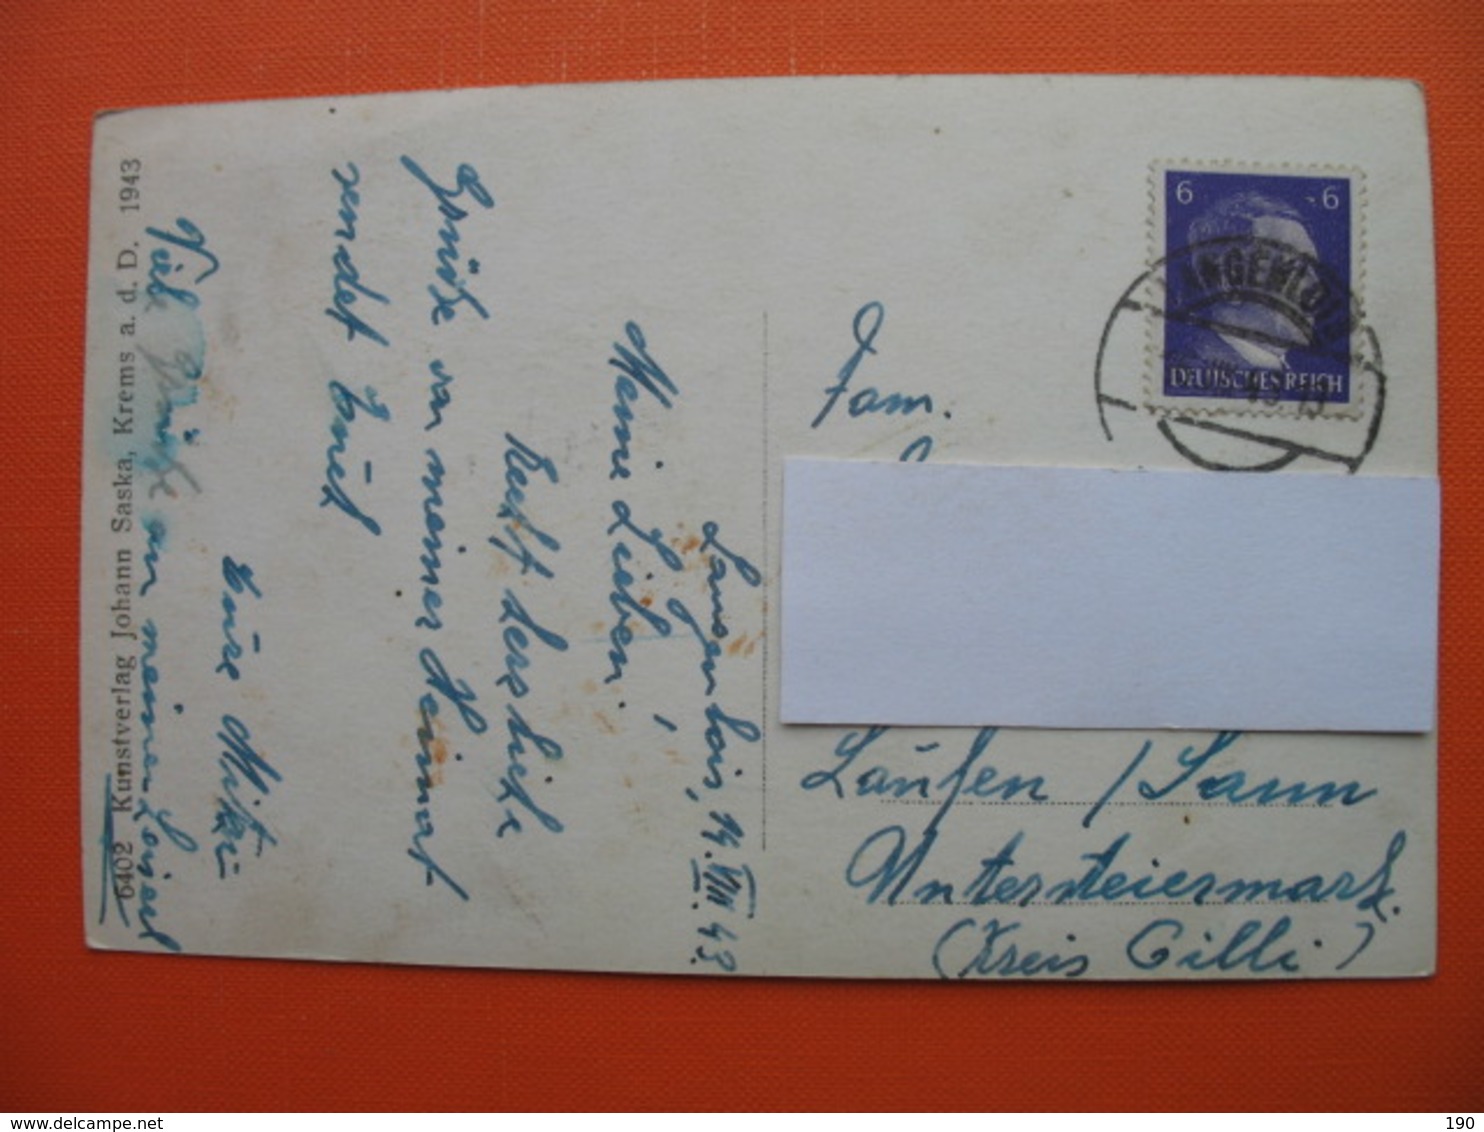 Langenlois, 14.VIII.43.
Meine Lieben!
Recht herzliche
Grüße von meiner Heimat
sendet Euch
Eure Mitzi
Viele Grüße an meinen
6402 Kunstverlag Johann Saska, Krems a. d. D. 1943
6 6
DEUTSCHES REICH
LANGENLOIS
Fam.
Laufen / Sann
Untersteiermark.
(Kreis Cilli)
delcampe.net
190